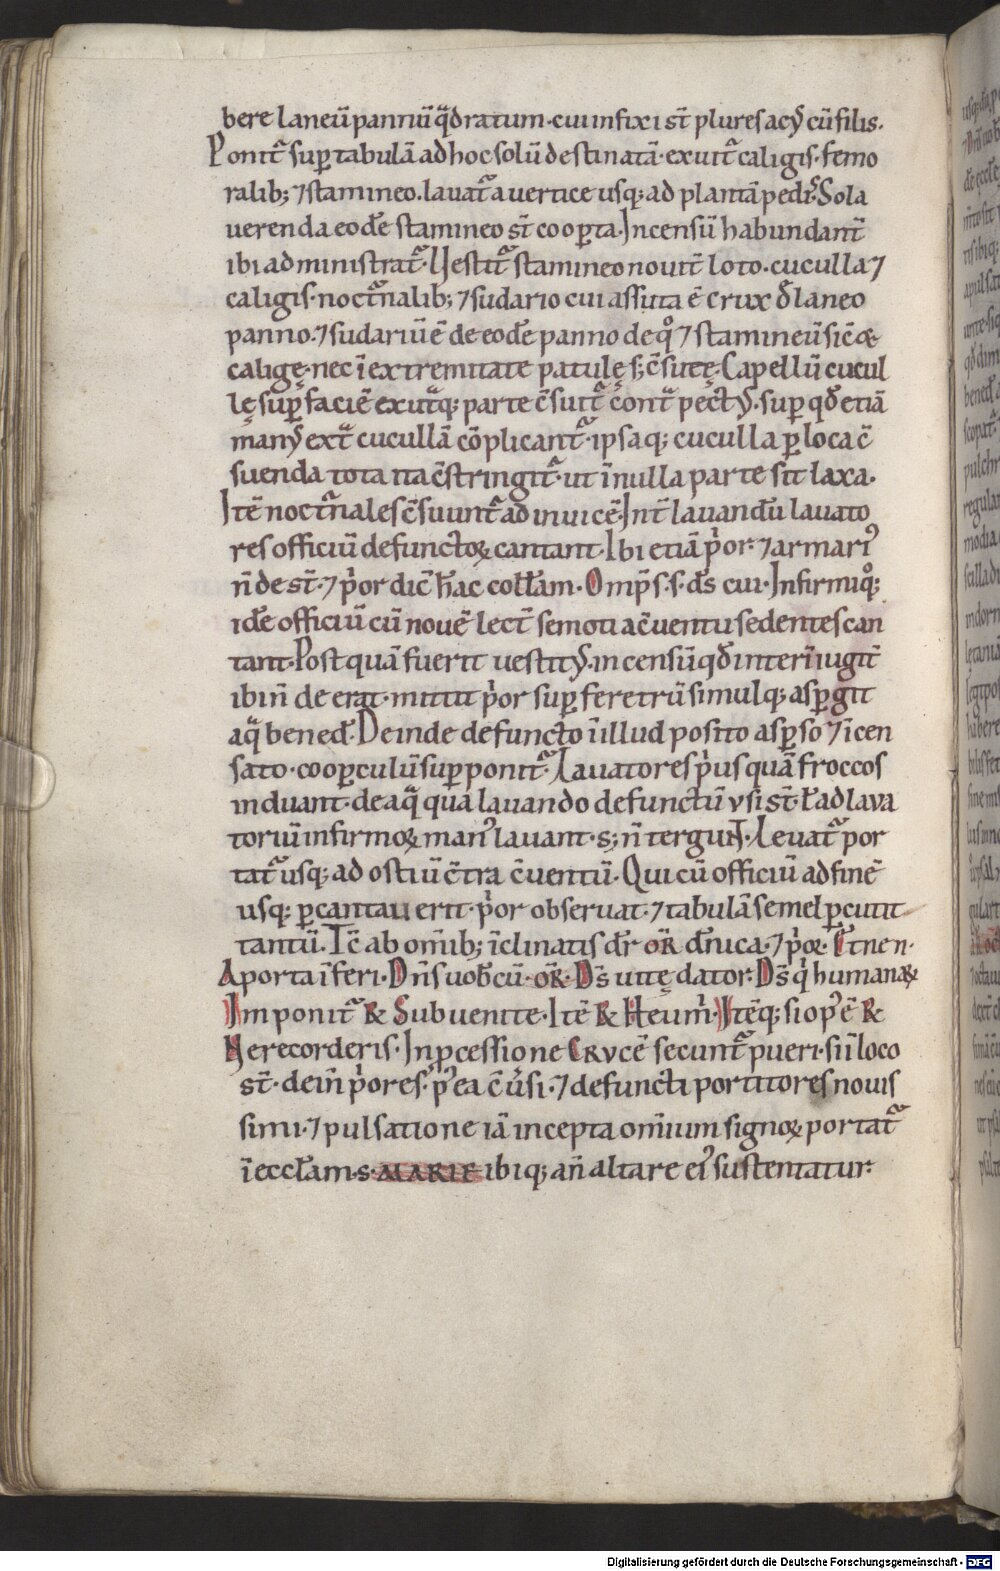 bere laneū pannū q̄dratum· cui infixi st̄ plures acꝰ cū filis·
Ponit᷑ suꝑ tabulā ad hoc solū destinatā· exuit᷑ caligis· femo
ralib; ⁊ stamineo. lauat᷑ a uertice usq; ad plantā pedis. Sola
uerenda eodē stamineo st̄ cooꝑta. Incensū habundant̄
ibi administrat᷑. Uestit᷑ stamineo nouit̄ loto· cuculla ⁊
caligis· noct᷑nalib; ⁊ sudario cui assuta ē crux d̄ laneo
panno. ⁊ sudariū ē de eodē panno de qͦ ⁊ stamineū sic̄ &
caligę· nec ī extremitate patulę s; c̄sutę. Capellū cucul
lę suꝑ faciē ex ut̄q; parte c̄suit᷑ cont̄ pect̄ꝰ· suꝑ qd̄ etiā
manꝰ ext̄ cucullā cōplicant᷑· ipsaq; cuculla ꝑ loca c̄
suenda tota ita c̄stringit᷑· ut ī nulla parte sit laxa·
Itē noct᷑nales c̄suunt᷑ ad inuicē· Int̄ lauandū lauato
res officiū defunctoꝝ cantant· Ibi etiā p̍or· ⁊ armariꝰ
n̄ de st̄· ⁊ p̍or dic̄ hāc coll̄am· Omp̄s· s· ds̄ cui· Infirmi qͦ;
idē officiū cū nouē lect̄ semoti a c̄uentu sedentes can
tant· Post quā fuerit uestitꝰ· incensū qd̄ interī iugit̄
ibi n̄ de erat· mittit p̍or suꝑ feretrū simulq; asꝑgit
aq̄ bened̄· Deinde defuncto ī illud posito asꝑso ⁊ īcen
sato· cooꝑculū suꝑponit᷑· Lauatores p̍us quā froccos
induant· de aq̄ qua lauando defunctū vsi st̄· t̄ ad laua
toriū infirmoꝝ manꝰ lauant· s; n̄ terguNT· Leuat᷑ por
tat᷑ usq; ad ostiū c̄tra c̄uentū· Qui cū officiū ad finē
usq; ꝑcantauerit· p̍or obseruat· ⁊ tabulā semel ꝑcutit
tantū. Tc̄ ab om̄ib; īclinatis dr̄ or̄ dn̄ica· ⁊ p̄ꝝ· Et ne n·
A porta īferi· Dn̄s uob̄cū· or̄· Ds̄ uitę dator· Ds̄ q̍ humanaꝝ
Imponit᷑ R̄ Subuenite· Itē R̄ Heu m̍· Itēq; si opꝰ ē R̄
Ne recorderis· In ꝓcessione Crvcē secunt᷑ pueri· si ī loco
st̄· dein̄ p̍ores· pꝰ ea c̄ūsi· ⁊ defuncti portitores nouis
simi· ⁊ pulsatione iā incepta om̄ium signoꝝ portat᷑
ī eccl̄am· s· MARIE ibiq; an̄ altare eiꝰ sustentatur·
Digitalisierung gefördert durch die Deutsche Forschungsgemeinschaft · DFG